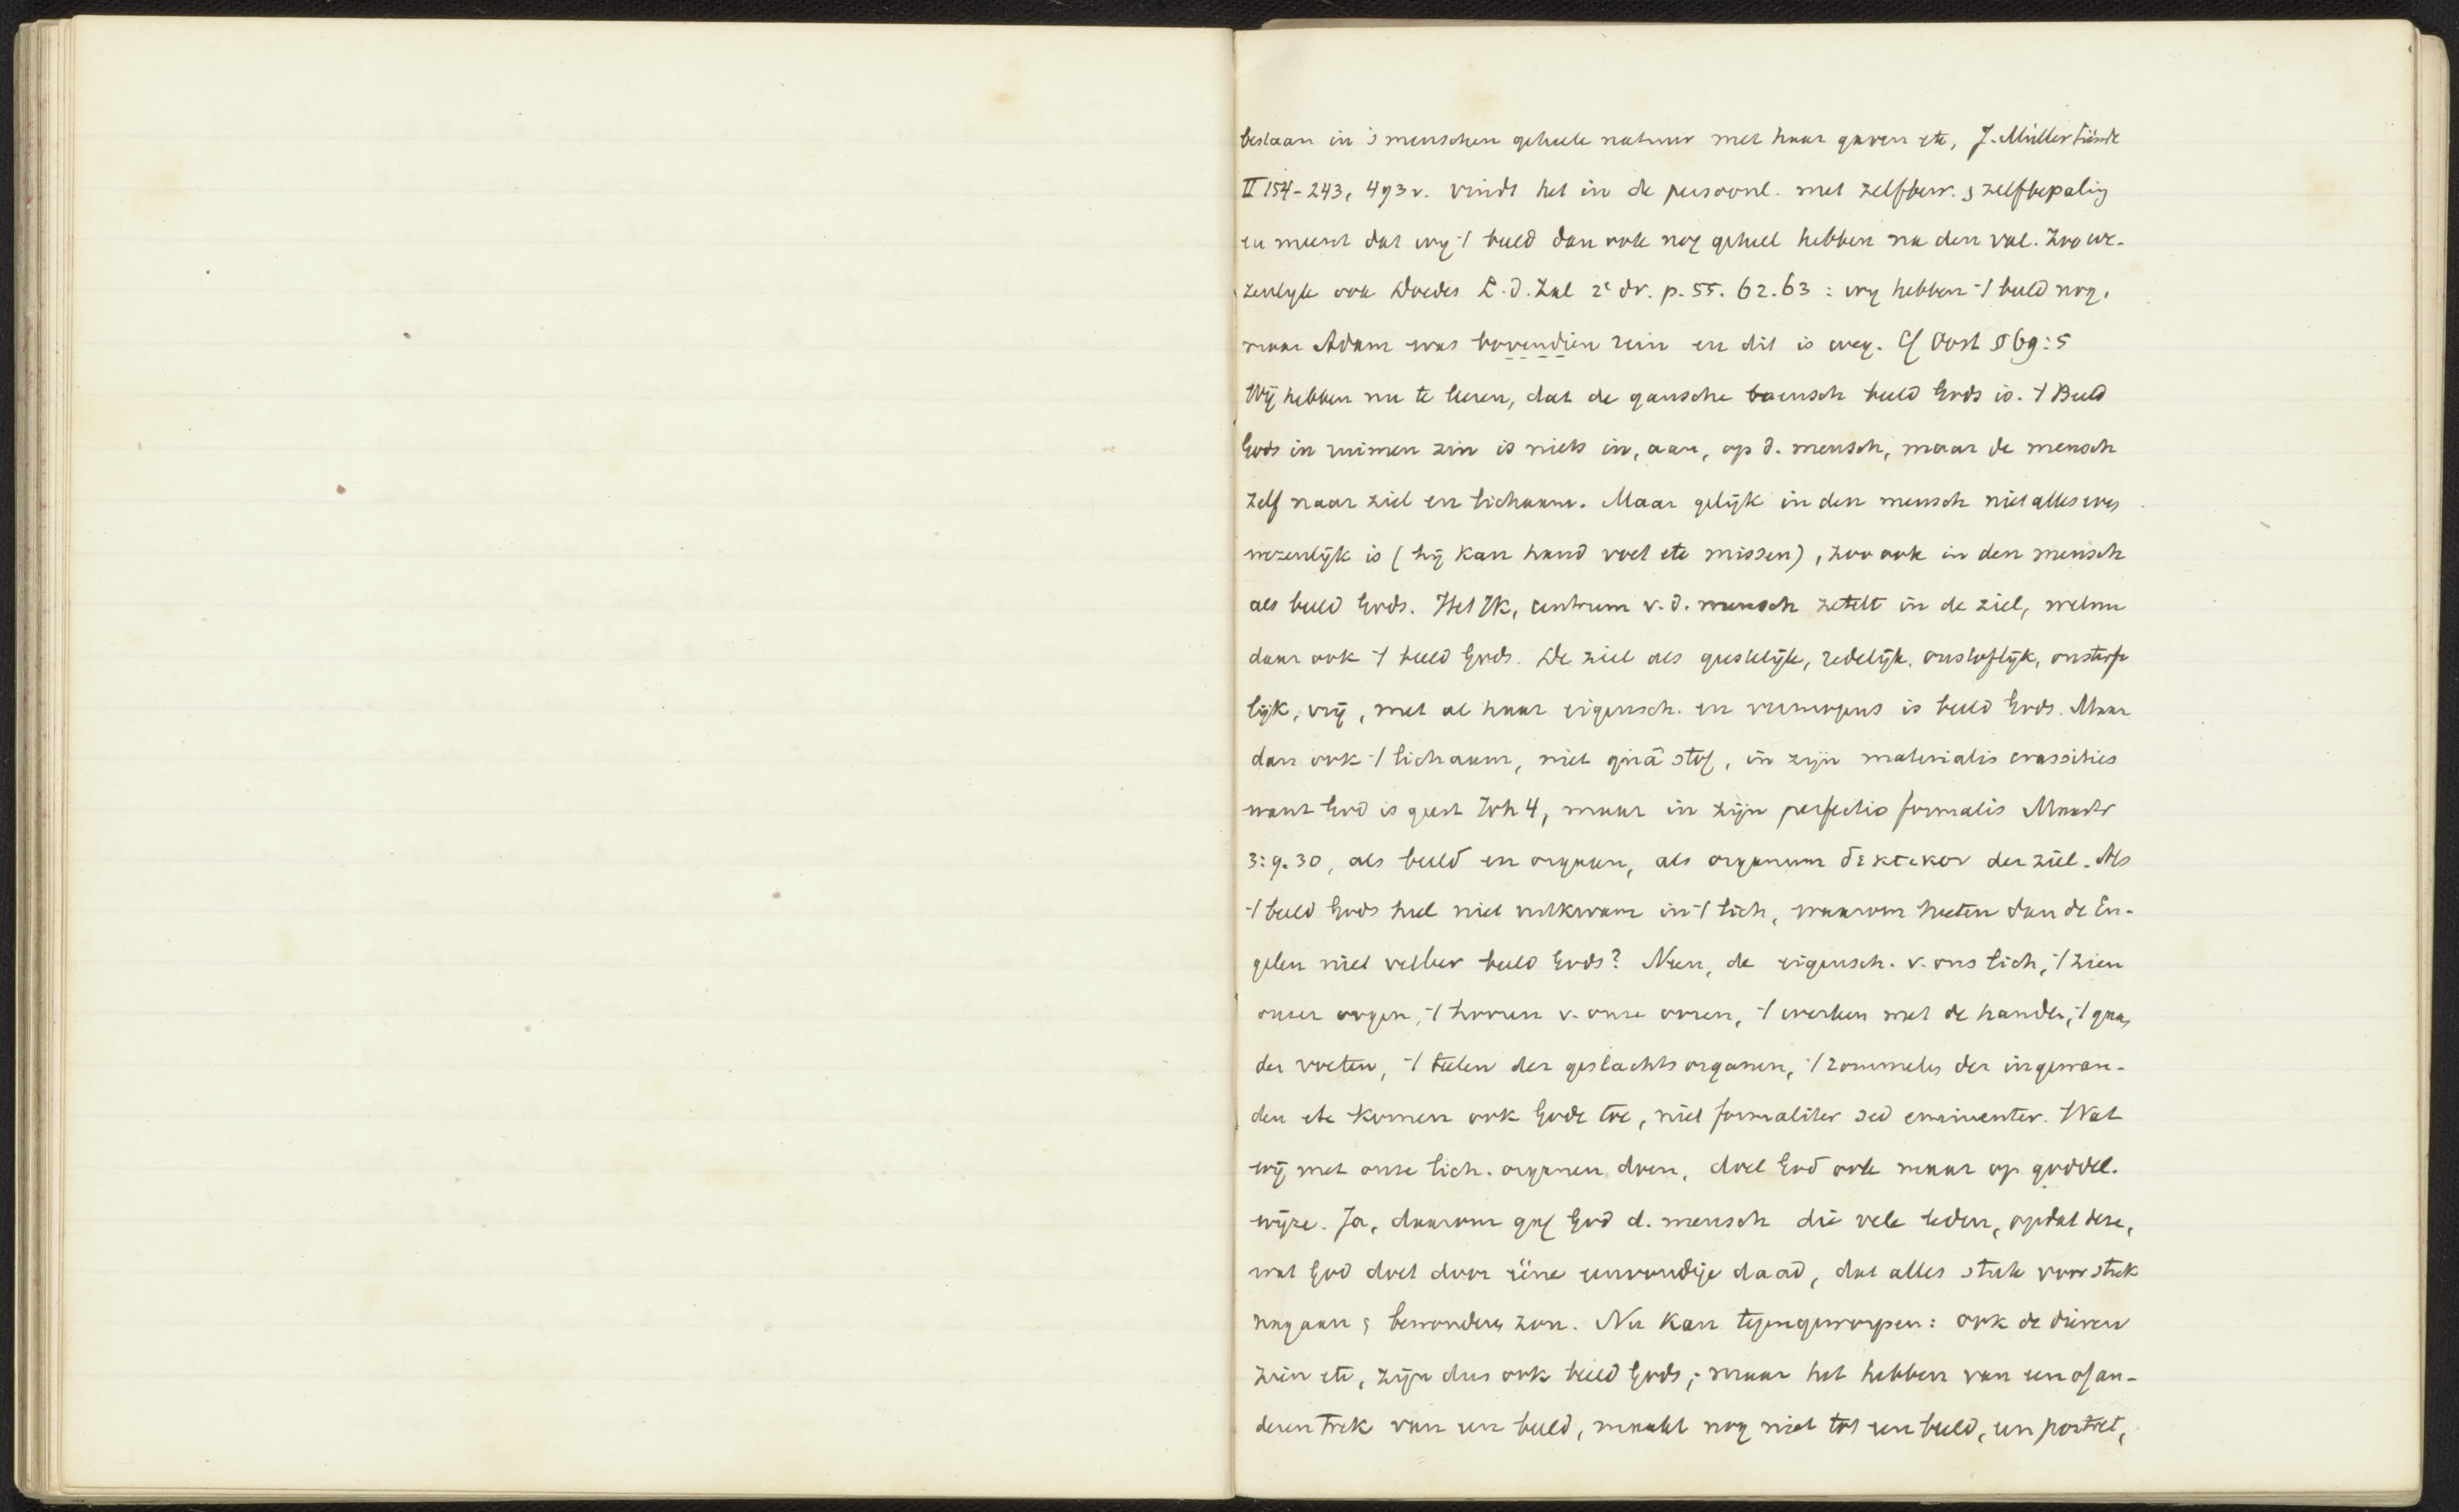 bestaan in 's menschen geheele natuur met haar gaven etc, J. Müller Sünde
II 154-243, 493v. vindt het in de persoonl. met zelfbew. & zelfbepaling
en meent dat wij 't beeld dan ook nog geheel hebben na den val. Zoo we-
zenlijk ook Doedes L.d. Zal 2e dr. p. 55. 62. 63 : wij hebben 't beeld nog,
maar Adam was bovendien rein en dit is weg. Cf Oost § 69:5
Wij hebben nu te leeren, dat de gansche mensch beeld Gods is. 't Beeld
Gods in ruimen zin is niets in, aan, op d. mensch, maar de mensch
zelf naar ziel en lichaam. Maar gelijk in den mensch niet alles even
wezenlijk is (hij kan hand voet etc missen), zoo ook in den mensch
als beeld Gods. Het Ik, centrum v. d. mensch zetelt in de ziel, welnu
daar ook 't beeld Gods. De ziel als geestelijk, redelijk, onstoflijk, onsterfe
lijk, vrij, met al haar eigensch. en vermogens is beeld Gods. Maar
dan ook 't lichaam, niet quâ stof, in zijn materialis crassities
want God is geest Joh 4, maar in zijn perfectio formalis Mastr
3:9.30, als beeld en orgaan, als organum δεκτικον der ziel. Als
't beeld Gods heel niet uitkwam in 't lich, waarom heeten dan de En-
gelen niet veeleer beeld Gods? Neen, de eigensch. v. ons lich, 't zien
onzer oogen, 't hooren v. onze ooren, 't werken met de handen, 't gaan
der voeten, 't telen der geslachtsorganen, 't rommelen der ingewan-
den etc komen ook Gode toe, niet formaliter sed eminenter. Wat
wij met onze lich. organen doen, doet God ook maar op goddel.
wijze. Ja, daarom gaf God d. mensch die vele leden, opdat deze,
wat God doet door ééne eenvoudige daad, dat alles stuk voor stuk
nagaan & bewonderen zou. Nu kan tegengeworpen: ook de dieren
zien etc, zijn dus ook beeld Gods; maar het hebben van een of an-
deren trek van een beeld, maakt nog niet tot een beeld, een portret,